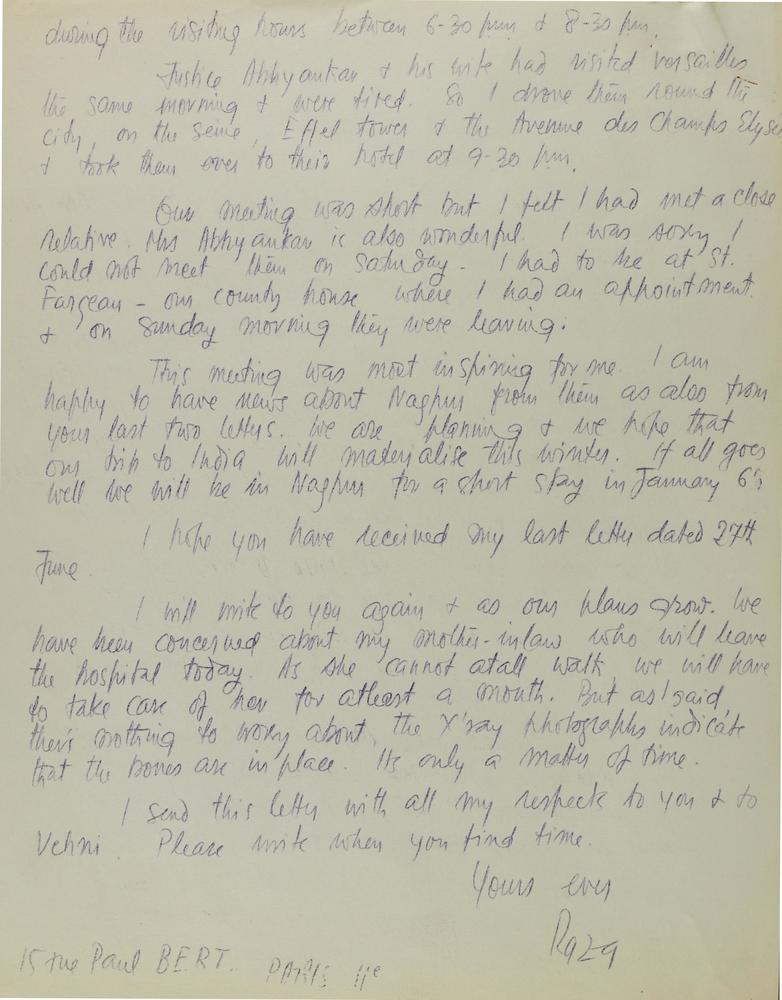 during the visiting hours between 6-30 p.m. & 8-30 p.m.
Justice Abhyankar & his wife had visited Versailles
the same morning & were tired. So I drove them round the
city, on the Seine, Eiffel tower & the Avenue des Champs Elysé
& took them over to their hotel at 9-30 p.m.
Our meeting was short but I felt I had met a close
relative. Mrs Abhyankar is also wonderful. I was sorry I
could not meet them on Saturday. I had to be at St.
Fargeau – our county house where I had an appointment
& on Sunday morning they were leaving.
This meeting was most inspiring for me. I am
happy to have news about Nagpur from them as also from
your last two letters. We are planning & we hope that
our trip to India will materialise this winter. If all goes
well we will be in Nagpur for a short stay in January
I hope you have received my last letter dated 27th
June.
I will write to you again & as our plans grow. We
have been concerned about my mother-inlaw who will leave
the hospital today. As she cannot atall walk, we will have
to take care of her for atleast a month. But as I said
ther's nothing to worry about, the X'ray photographs indicate
that the bones are in place. Its only a matter of time.
I send this letter with all my respects to you & to
Please write when you find time.
Yours ever
Raza
15 rue Paul BERT. PARIS 11e